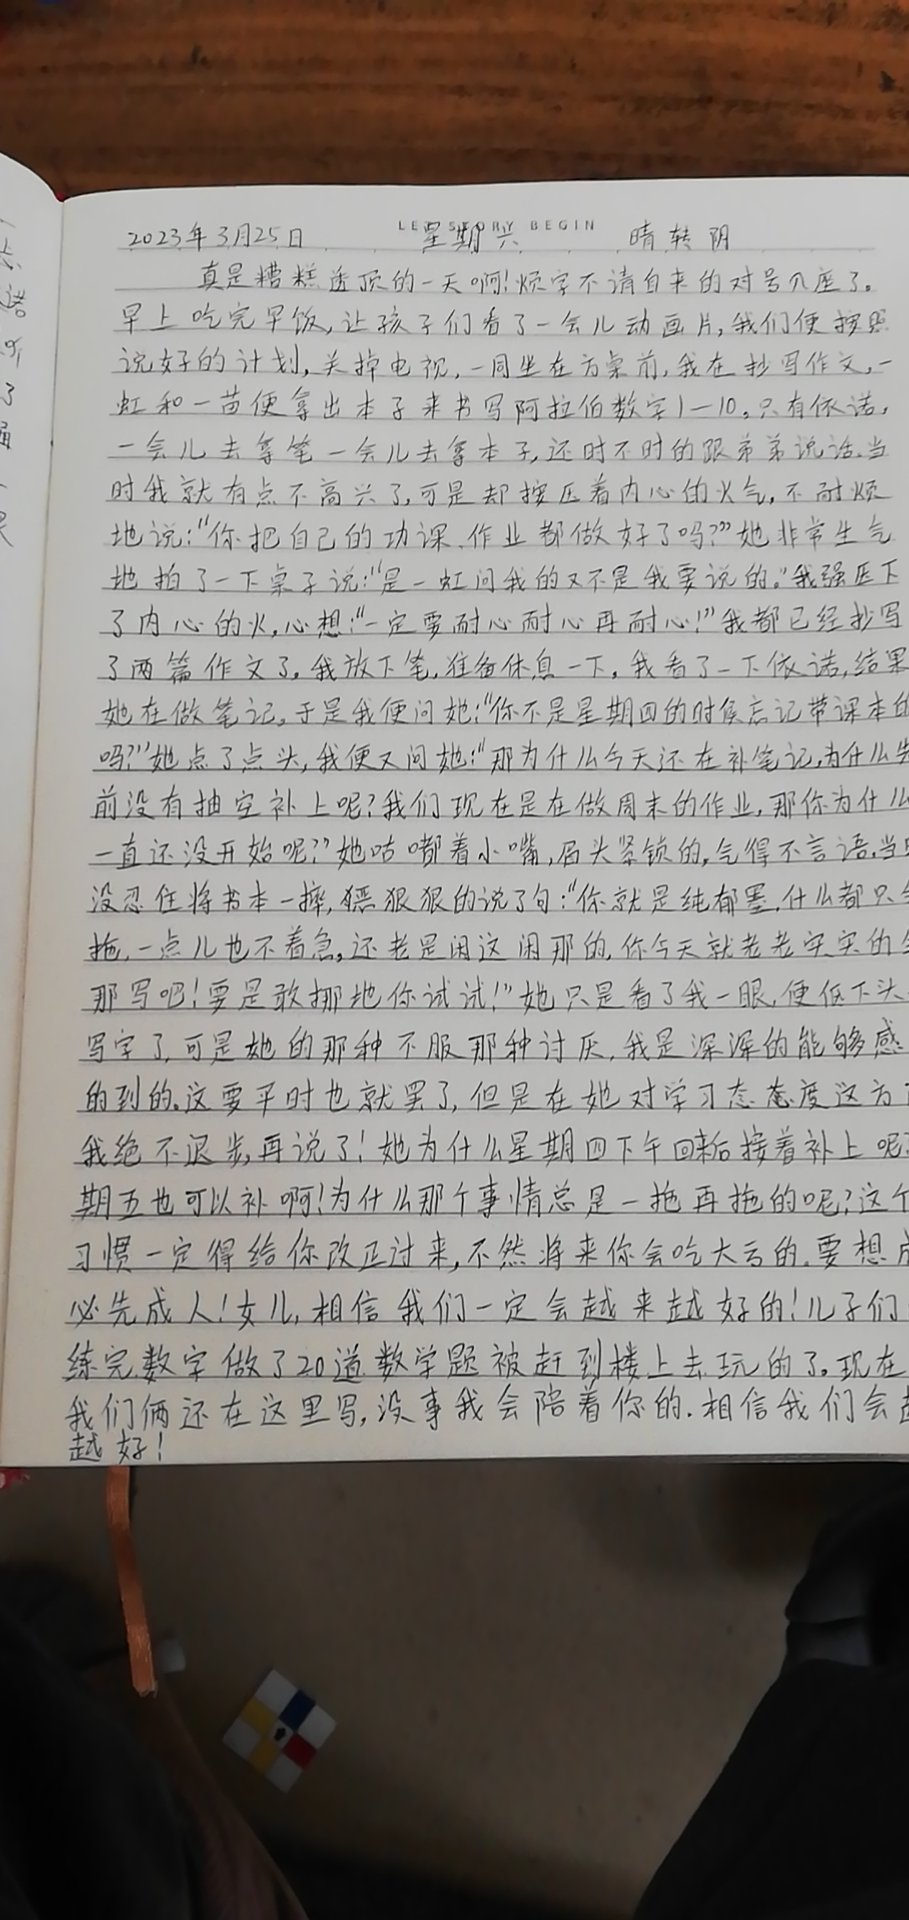 LET STORY BEGIN
2023年3月25日 星期六 晴转阴
真是糟糕透顶的一天啊!烦字不请自来的对号入座了。
早上吃完早饭,让孩子们看了一会儿动画片,我们便按照
说好的计划,关掉电视,一同坐在方桌前,我在抄写作文,一
虹和一苗便拿出本子来书写阿拉伯数字1—10。只有依诺,
一会儿去拿笔一会儿去拿本子,还时不时的跟弟弟说话.当
时我就有点不高兴了,可是却按压着内心的火气,不耐烦
地说:“你把自己的功课、作业都做好了吗?”她非常生气
地拍了一下桌子说:“是一虹问我的又不是我要说的。”我强压下
了内心的火,心想:“一定要耐心耐心再耐心!”我都已经抄写
了两篇作文了。我放下笔,准备休息一下。我看了一下依诺,结果
她在做笔记。于是我便问她:“你不是星期四的时候忘记带课本的
吗?”她点了点头,我便又问她:“那为什么今天还在补笔记,为什么
前没有抽空补上呢?我们现在是在做周末的作业,那你为什么
一直还没开始呢?”她咕嘟着小嘴,眉头紧锁的,气得不言语.当
没忍住将书本一摔,狠狠的说了句:“你就是纯郁墨.什么都只
拖,一点儿也不着急,还老是闲这闲那的.你今天就老老实实的
那写吧!要是敢挪地你试试!”她只是看了我一眼,便低下头
写字了,可是她的那种不服那种讨厌,我是深深的能够感
的到的.这要平时也就罢了,但是在她对学习态度这方
我绝不退步,再说了!她为什么星期四下午回来后接着补上呢
期五也可以补啊!为什么那个事情总是一拖再拖的呢?这个
习惯一定得给你改正过来,不然将来你会吃大亏的.要想
必先成人!女儿,相信我们一定会越来越好的!儿子们
练完数字做了20道数学题被赶到楼上去玩的了。现在
我们俩还在这里写,没事我会陪着你的.相信我们会
越好!